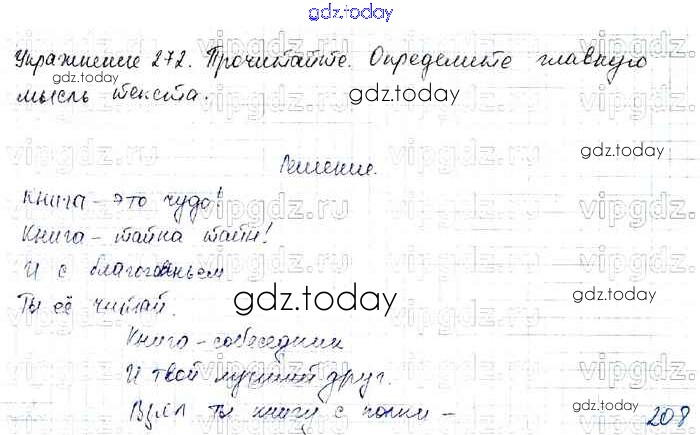 gdz.today
Упражнение 272. Прочитайте. Определите главную
мысль текста.
gdz.today
gdz.today
gdz.today
Решение.
Книга - это чудо!
Книга - тайна тайн!
И с благоговеньем
Ты её читай.
gdz.today
gdz.today
Книга - собеседник
И твой лучший друг.
Взял ты книгу с полки -
208
vipgdz.ru